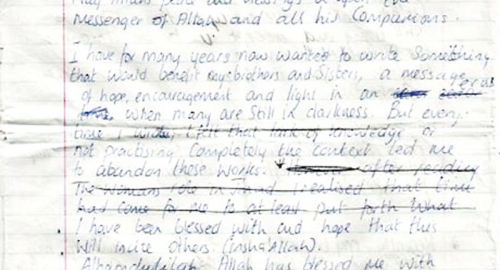 Messenger of Allah and all his Companions.
I have for many years now wanted to write something
that would benefit my brothers and sisters, a message
of hope, encouragement and light in an
when many are still in darkness. But every
time I felt that lack of knowledge or
not practising completely the context led me
to abandon those works. after reading
The Womans role in I realised that time
had come for me to at least put forth what
I have been blessed with and hope that this
will incite others (insha'Allah).
Alhamdulillah, Allah has blessed me with